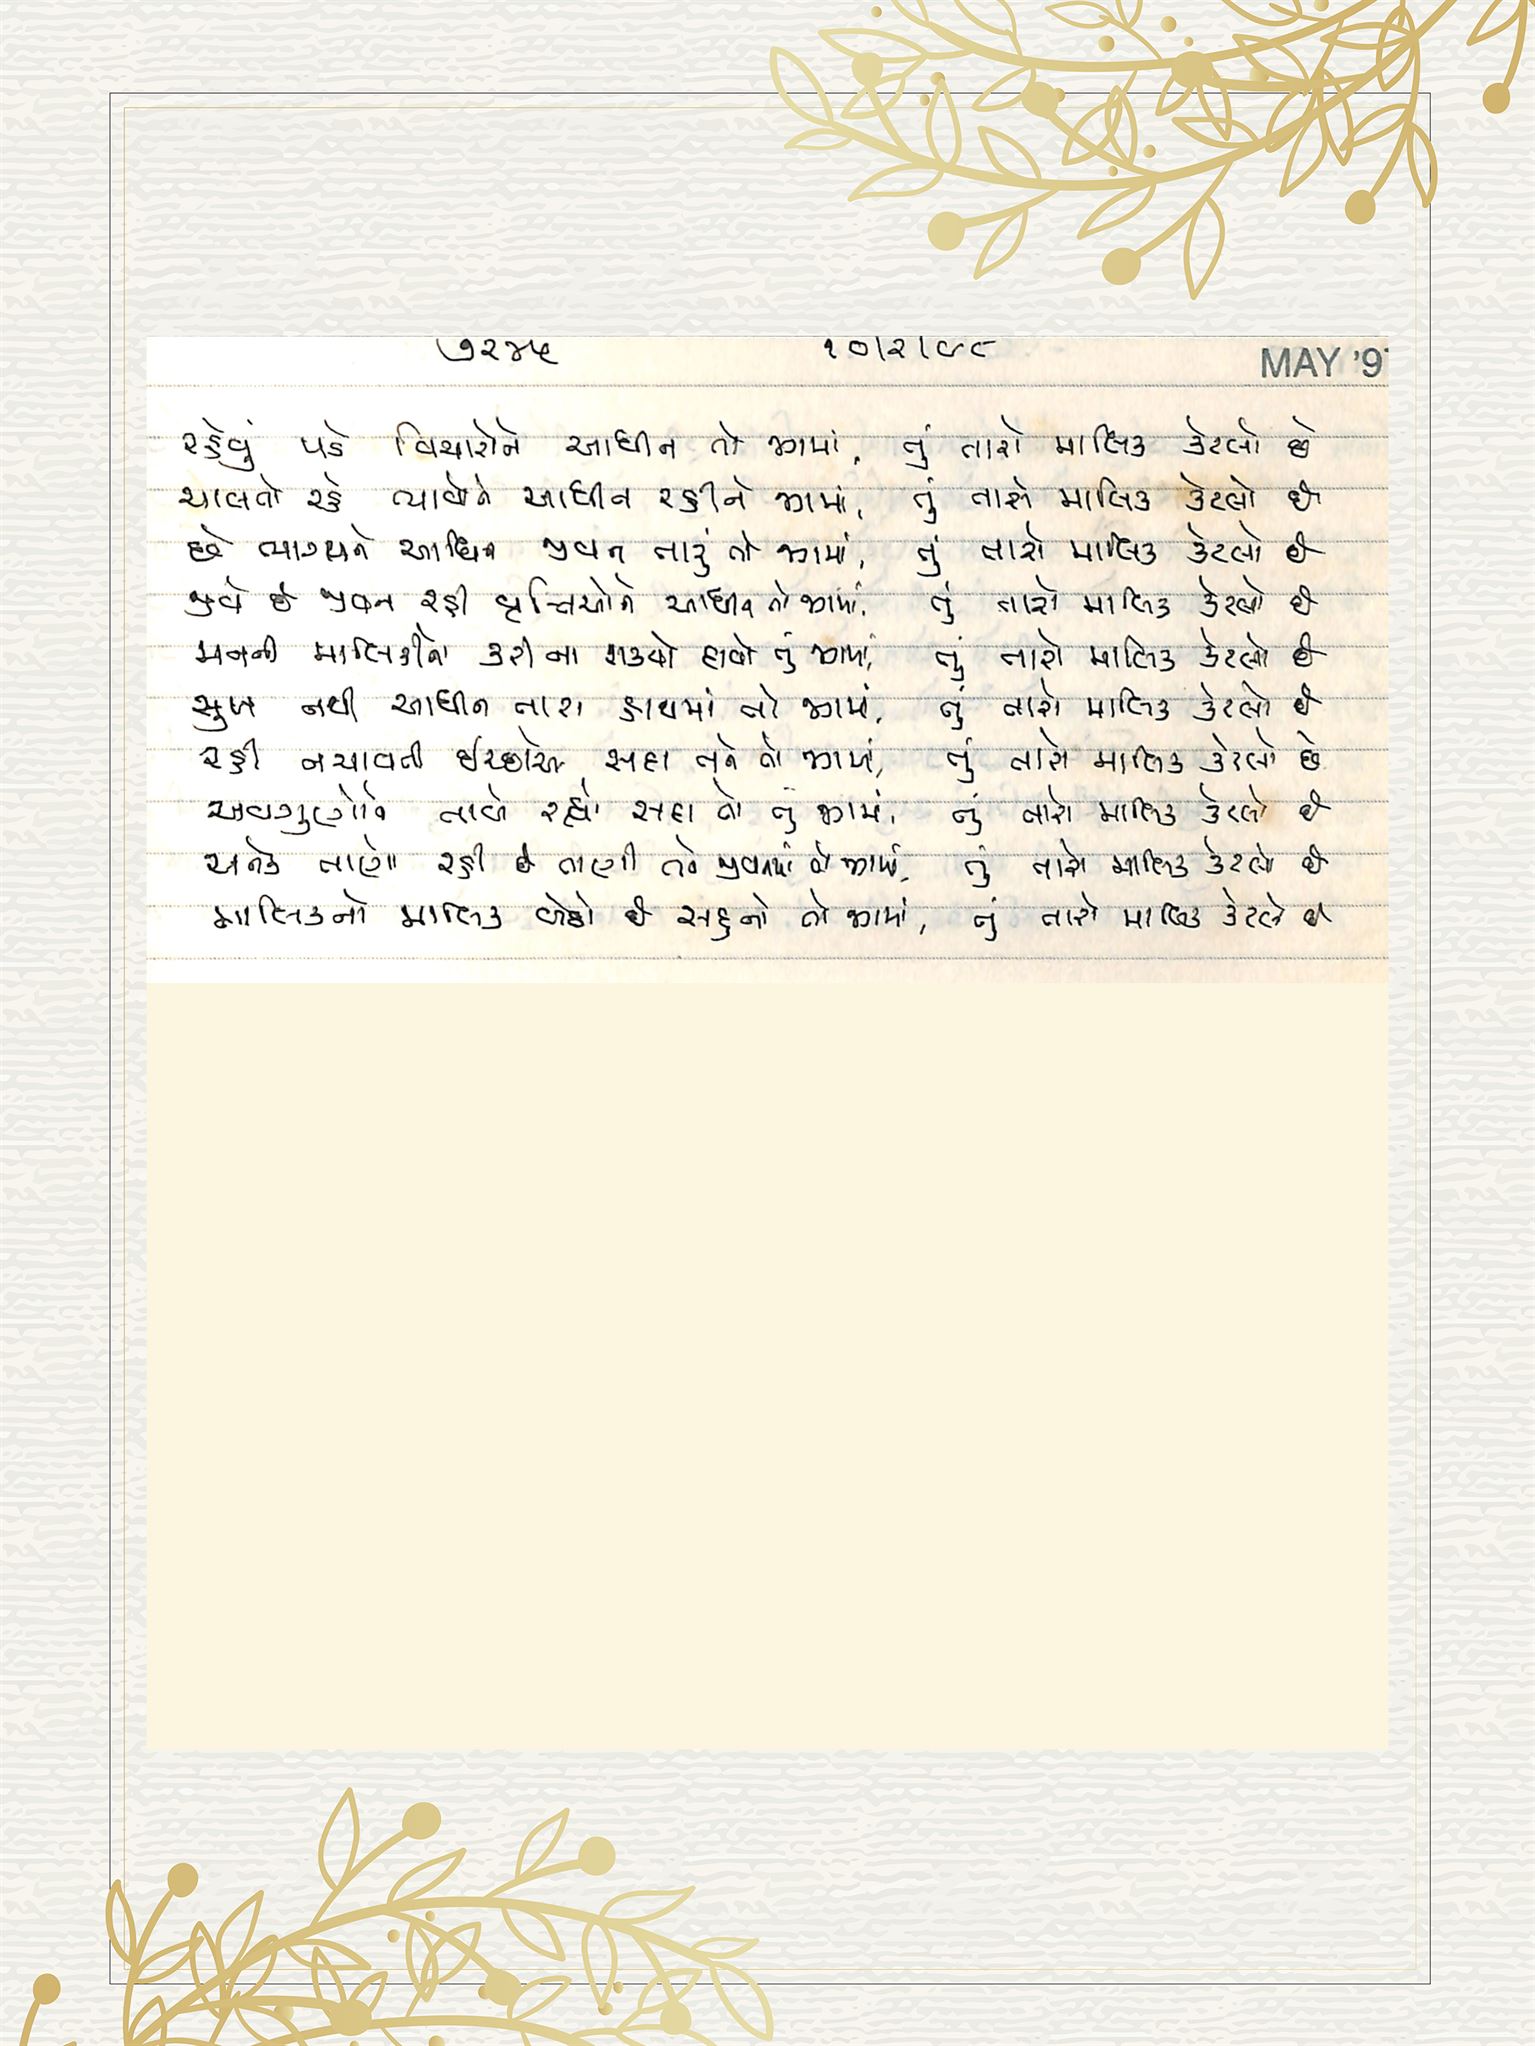 ૭૨૪૫ ૧૦/૨/૯૮ MAY '9
રહેવું પડે વિચારોને આધીન તો જ્યાં, તું તારો માલિક કેટલો છે
ચાલતો રહે ભાવોને આધીન રહીને જ્યાં, તું તારો માલિક કેટલો છે
છે ભાગ્યને આધિન જીવન તારું તો જ્યાં, તું તારો માલિક કેટલો છે
જીવે છે જીવન રહી વૃત્તિઓને આધીન તો જ્યાં, તું તારો માલિક કેટલો છે
મનની માલિકીનો કરી ના શક્યો દાવો તું જ્યાં, તું તારો માલિક કેટલો છે
સુખ નથી આધીન તારા હાથમાં તો જ્યાં, તું તારો માલિક કેટલો છે
રહી નચાવતી ઈચ્છાઓ સદા તને તો જ્યાં, તું તારો માલિક કેટલો છે
અવગુણોને તાબે રહ્યો સદા તો તું જ્યાં, તું તારો માલિક કેટલો છે
અનેક તાણો રહી છે તાણી તને જીવનમાં તો જ્યાં, તું તારો માલિક કેટલો છે
માલિકનો માલિક બેઠો છે સહુનો તો જ્યાં, તું તારો માલિક કેટલો છે